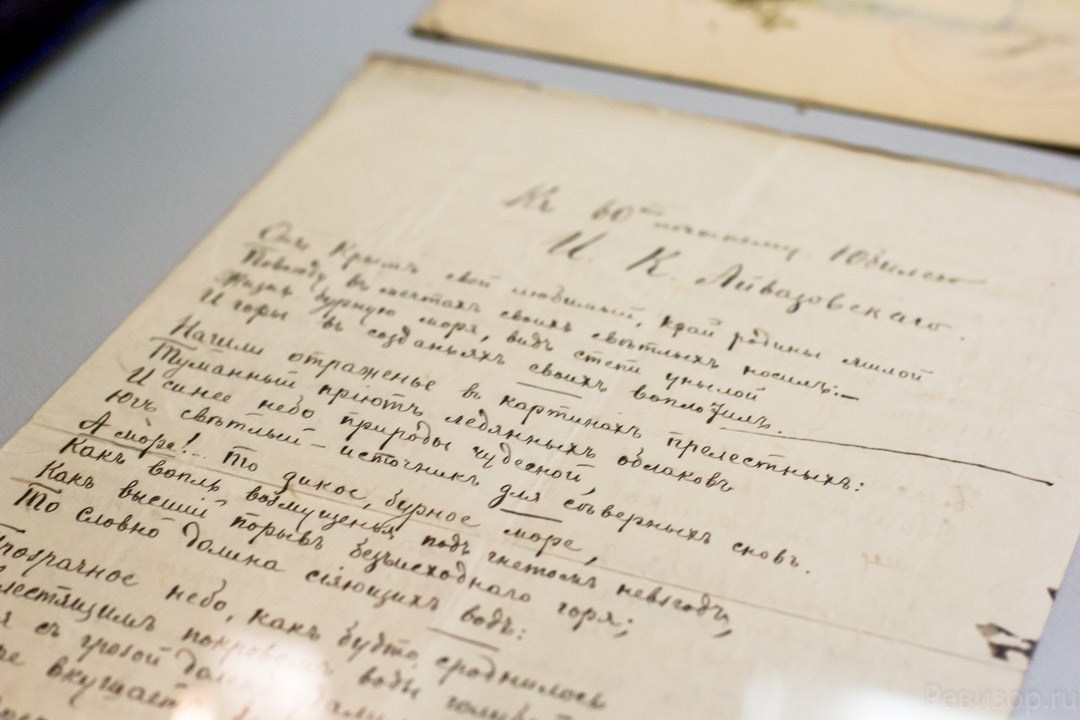 Къ 60-тилѣтнему Юбилею
И. К. Айвазовскаго.
Онъ Крымъ свой любимый, край родины милой
Повсюду въ мечтахъ своихъ свѣтлыхъ носилъ:—
Жизнь бурную моря, видъ степи унылой
И горы въ созданьяхъ своихъ воплотилъ.
Нашли отраженье въ картинахъ прелестныхъ:
Туманный пріютъ ледянныхъ облаковъ
И синее небо природы чудесной,
Югъ свѣтлый – источникъ для сѣверныхъ сновъ.
А море!.. то дикое, бурное море,
Какъ вопль возмущенья подъ гнетомъ невзгодъ,
Какъ высшій порывъ безъисходнаго горя;
То словно долина сіяющихъ водъ:
прозрачное небо, какъ будто сроднилось
покровомъ воды
съ грозой
вкушает
Ревизор.ru